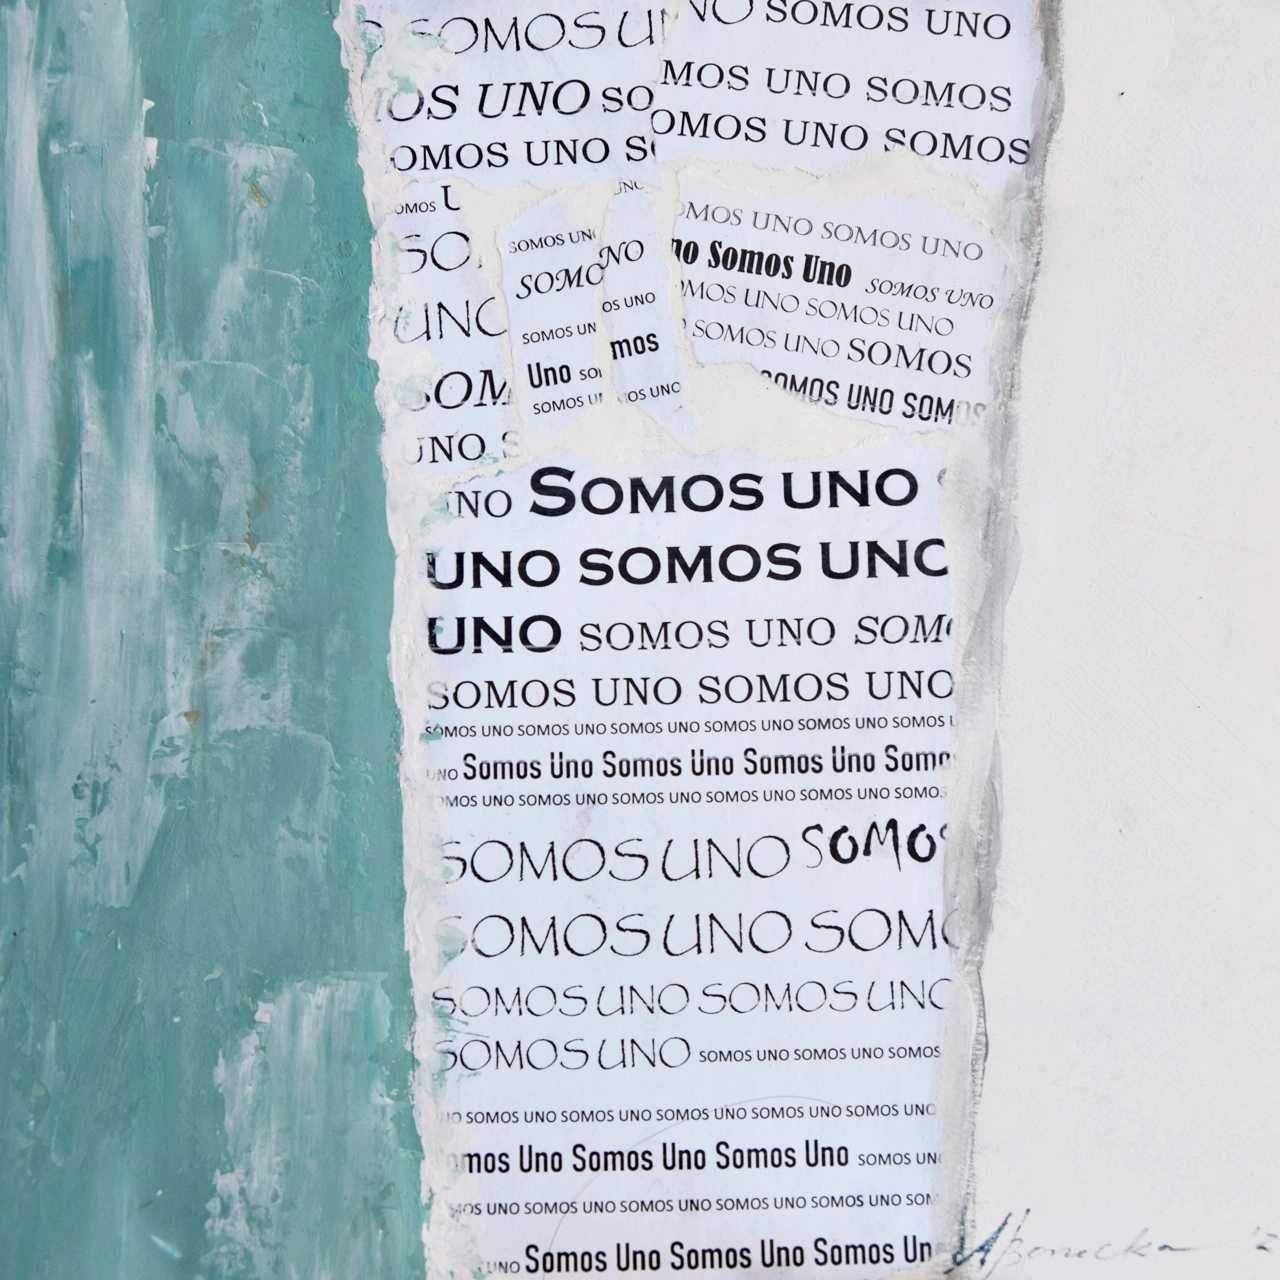 SOMOS
SOMOS UNO
UNO
UNO SOMOS
SOMOS UNO
UNO SOMOS
SOMOS UNO
UNO SOMOS UNO
Somos Uno SOMOS UNO
UNO SOMOS UNO
SOMOS UNO SOMOS
SOMOS UNO
UNO
UNO
Uno
UNO
UNO
UNO SOMOS UNO
UNO SOMOS UNO
UNO SOMOS UNO
SOMOS UNO SOMOS UNO
SOMOS UNO SOMOS UNO SOMOS UNO SOMOS UNO SOMOS UNO SOMOS
UNO Somos Uno Somos Uno Somos Uno
UNO SOMOS UNO SOMOS UNO SOMOS UNO SOMOS UNO SOMOS
SOMOS UNO SOMOS
SOMOS UNO
SOMOS UNO SOMOS UNO
SOMOS UNO SOMOS UNO SOMOS UNO SOMOS
SOMOS UNO SOMOS UNO SOMOS UNO SOMOS UNO SOMOS UNO
Uno Somos Uno Somos Uno SOMOS
UNO SOMOS UNO SOMOS UNO SOMOS UNO SOMOS UNO
UNO Somos Uno Somos Uno Somos